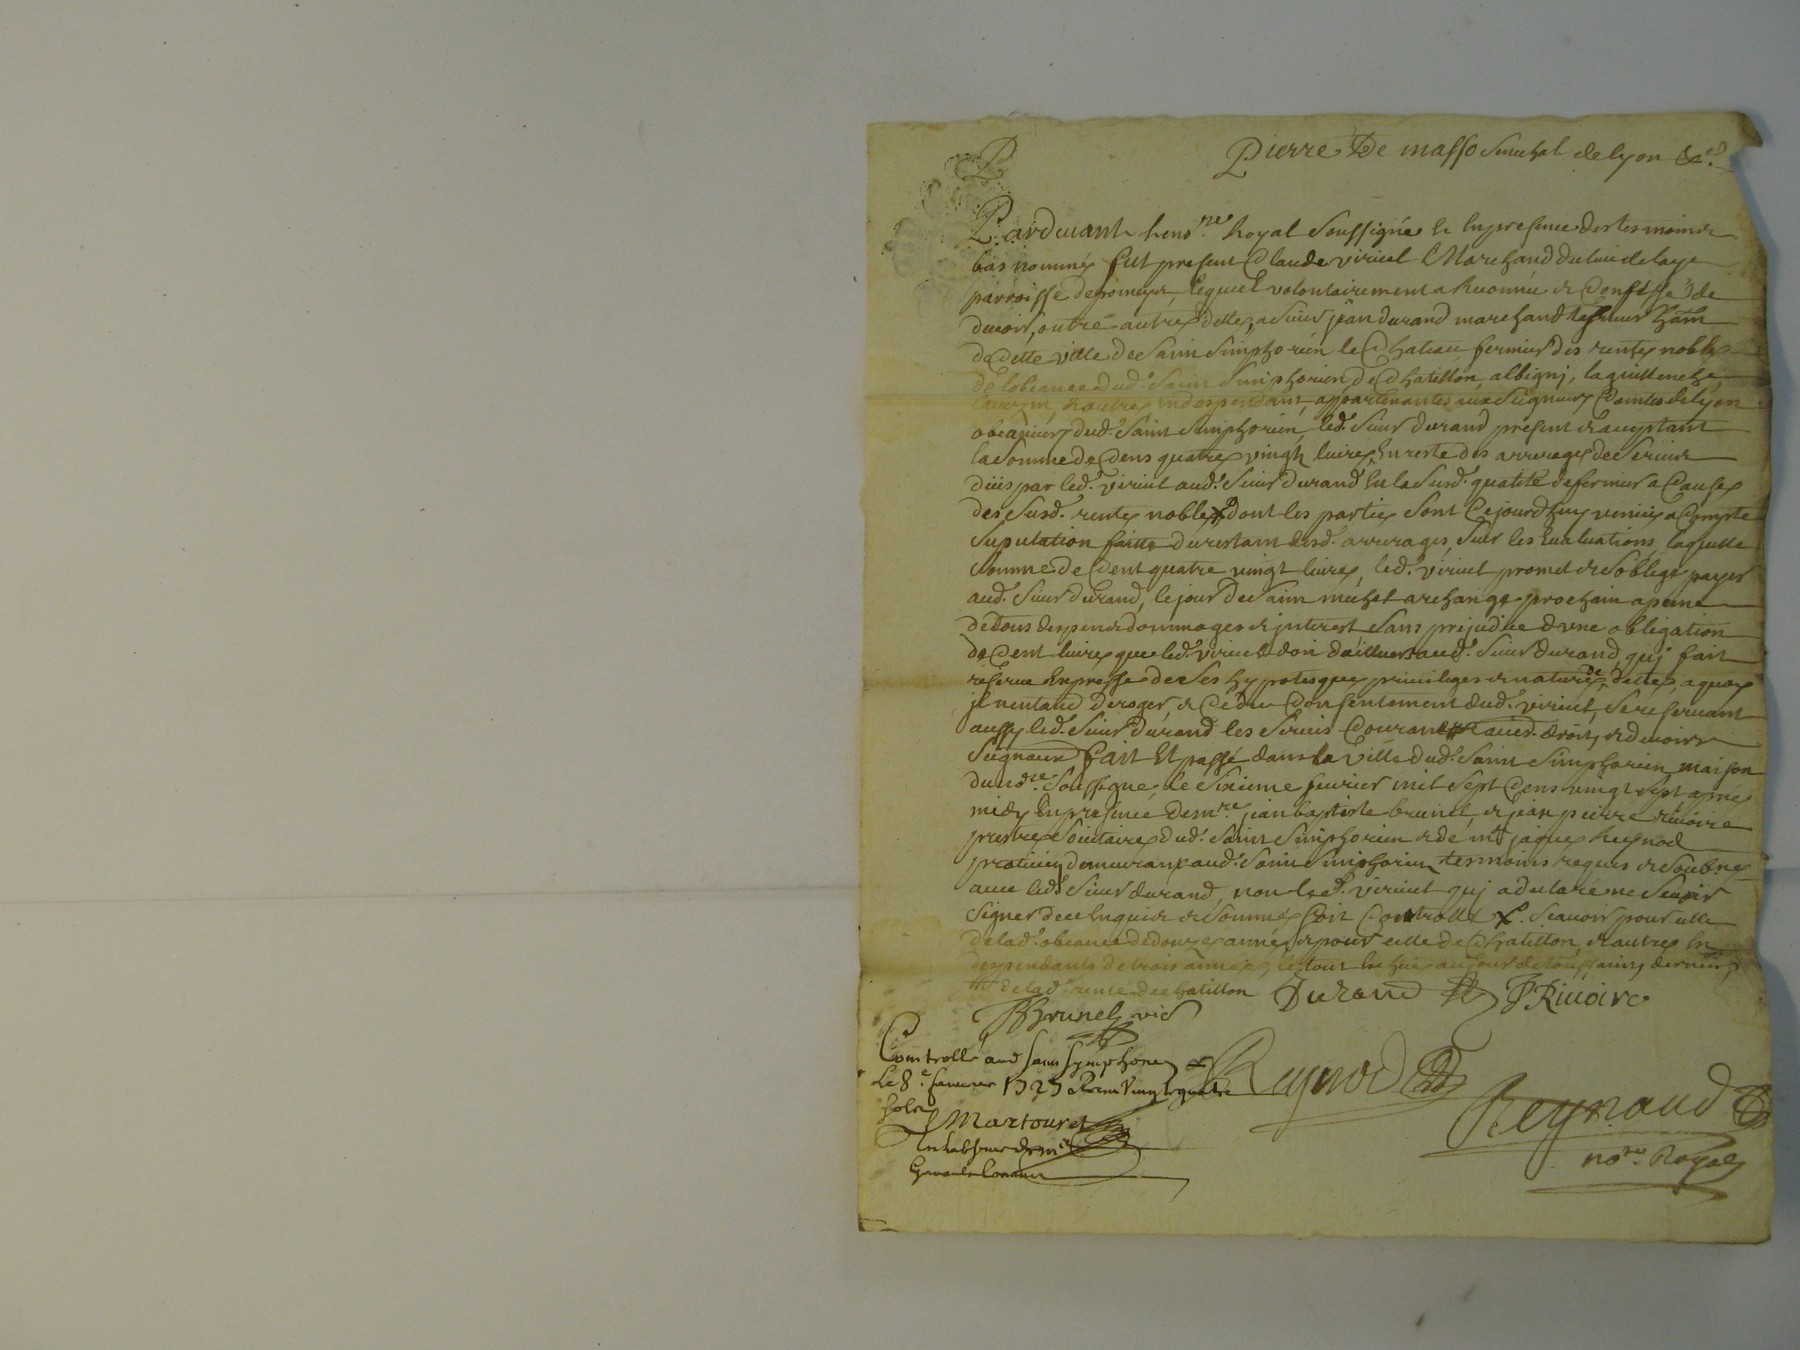 Pierre De masso senechal de lyon &c.
Pardevant le no.re Royal soussigné et En presence des tesmoins
bas nommés fut present Claude viricel Marchand du lieu de laye
parroisse de pomeys, lequel volontairement a Reconnu et Confessé de
devoir, outre autres dettes, a sieur jean durand marchand
de Cette ville de Saint Simphorien le Chateau fermier des rentes nobles
de lobeance dud. Saint Simphorien, de Chatillon, albigni, la guillenche
et autres En despendant, appartenantes aux Seigneurs Comtes de lyon
obeanciers dud. Saint Simphorien, led. Sieur durand présent et acceptant
la somme de Cens quatre vingt livres, En reste des arrerages de Servis
düs par led. viricel aud. Sieur durand En la Susd. qualité de fermier a Cause
des Susd. rentes nobles dont les parties Sont Cejourdhuy venues a Compte
Suputation faitte du restant desd. arrerages, Sur les Evaluations, laquelle
Somme de Cent quatre vingt livres, led. viricel promet et Soblige payer
aud. Sieur durand, le jour de Saint michel archange prochain a peine
de tous despens dommages et interest Sans prejudice dune obligation
de Cent livres que led. viricel doit dailleurs aud. Sieur durand, qui fait
reserve Expresse de Ses hypotesques privileges et nature de dettes, a quoy
il nentand deroger, et Ce du Consentement dud. viricel, se reservant
aussy led. Sieur durand les Servis Courant et autres droits et devoirs
Seigneuriaux fait Et passé dans la ville dud. Saint Simphorien maison
du no.re Soussigné, le Sixieme fevrier mil Sept Cens vingt sept apres
midy En presence de m.re jean baptiste brunel, et jean pierre rivoire
prestres Societaires dud. Saint Simphorien et de m.e jaques Reynod
praticien demeurant aud. Saint Simphorien tesmoins requis et Soubnes
avec led. Sieur durand, non led. viricel qui a declaré ne Scavoir
Signer de ce Enquis et Sommé Soit Controllé X. Scavoir pour celle
de lad. obeance de douze années et pour celle de Chatillon, et autres En
despendants de trois années, le tout Echüe au jour de toussaints dernier,
de lad. rente de chatillon Durand JP Rivoire
JBrunel vic
Controllé aud Saint Symphorien
Le 8.e fevrier 1727 Receu Vingt quatre
sols
Martouret
Reynod
Reynaud
no.re Royal